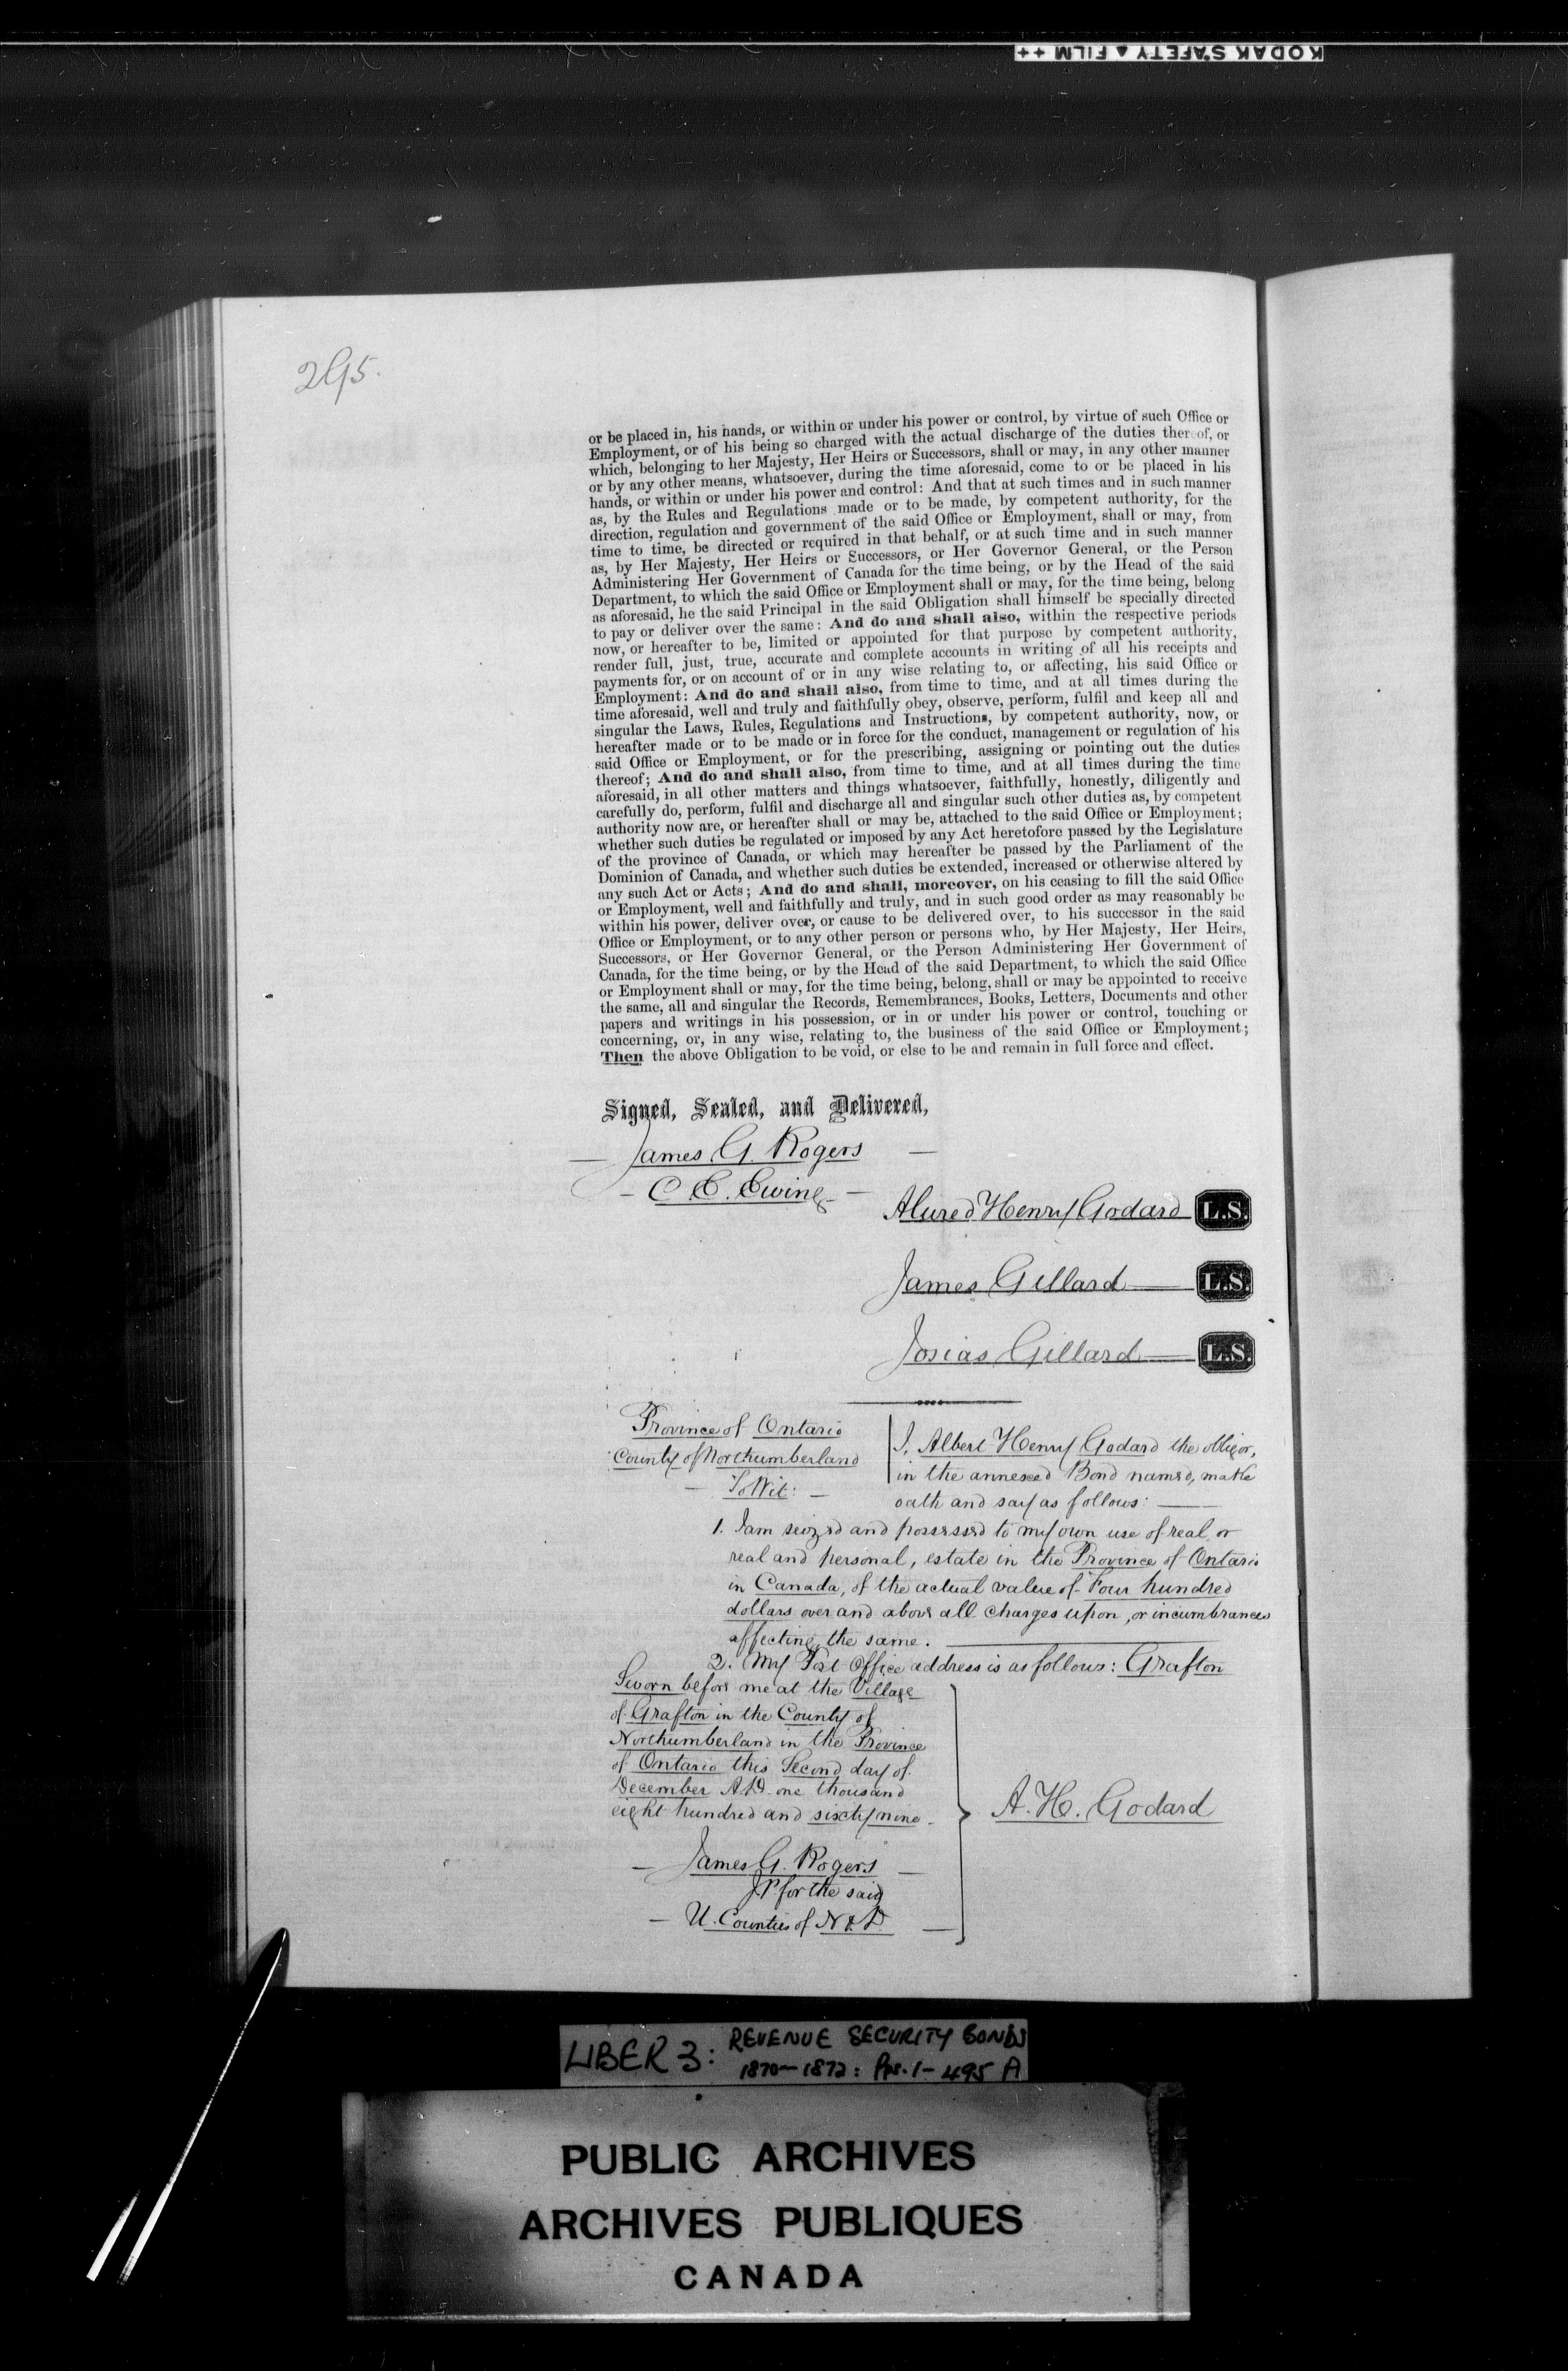 KODAK SAFETY ▲ FILM ++
295.
or be placed in, his hands, or within or under his power or control, by virtue of such Office or
Employment, or of his being so charged with the actual discharge of the duties thereof, or
which, belonging to her Majesty, Her Heirs or Successors, shall or may, in any other manner
or by any other means, whatsoever, during the time aforesaid, come to or be placed in his
hands, or within or under his power and control: And that at such times and in such manner
as, by the Rules and Regulations made or to be made, by competent authority, for the
direction, regulation and government of the said Office or Employment, shall or may, from
time to time, be directed or required in that behalf, or at such time and in such manner
as, by Her Majesty, Her Heirs or Successors, or Her Governor General, or the Person
Administering Her Government of Canada for the time being, or by the Head of the said
Department, to which the said Office or Employment shall or may, for the time being, belong
as aforesaid, he the said Principal in the said Obligation shall himself be specially directed
to pay or deliver over the same: And do and shall also, within the respective periods
now, or hereafter to be, limited or appointed for that purpose by competent authority,
render full, just, true, accurate and complete accounts in writing of all his receipts and
payments for, or on account of or in any wise relating to, or affecting, his said Office or
Employment: And do and shall also, from time to time, and at all times during the
time aforesaid, well and truly and faithfully obey, observe, perform, fulfil and keep all and
singular the Laws, Rules, Regulations and Instructions, by competent authority, now, or
hereafter made or to be made or in force for the conduct, management or regulation of his
said Office or Employment, or for the prescribing, assigning or pointing out the duties
thereof; And do and shall also, from time to time, and at all times during the time
aforesaid, in all other matters and things whatsoever, faithfully, honestly, diligently and
carefully do, perform, fulfil and discharge all and singular such other duties as, by competent
authority now are, or hereafter shall or may be, attached to the said Office or Employment;
whether such duties be regulated or imposed by any Act heretofore passed by the Legislature
of the province of Canada, or which may hereafter be passed by the Parliament of the
Dominion of Canada, and whether such duties be extended, increased or otherwise altered by
any such Act or Acts; And do and shall, moreover, on his ceasing to fill the said Office
or Employment, well and faithfully and truly, and in such good order as may reasonably be
within his power, deliver over, or cause to be delivered over, to his successor in the said
Office or Employment, or to any other person or persons who, by Her Majesty, Her Heirs,
Successors, or Her Governor General, or the Person Administering Her Government of
Canada, for the time being, or by the Head of the said Department, to which the said Office
or Employment shall or may, for the time being, belong, shall or may be appointed to receive
the same, all and singular the Records, Remembrances, Books, Letters, Documents and other
papers and writings in his possession, or in or under his power or control, touching or
concerning, or, in any wise, relating to, the business of the said Office or Employment;
Then the above Obligation to be void, or else to be and remain in full force and effect.
Signed, Sealed, and Delivered,
— James G. Rogers —
— C. E. Ewing —
Alured Henry Godard L.S.
James Gillard — L.S.
Josias Gillard — L.S.
Province of Ontario
County of Northumberland
— To Wit: —
I, Albert Henry Godard the obligor,
in the annexed Bond named, make
oath and say as follows: —
1. I am seized and possessed to my own use of real or
real and personal, estate in the Province of Ontario
in Canada, of the actual value of Four hundred
dollars over and above all charges upon, or incumbrances
affecting the same. —
2. My Post Office address is as follows: Grafton
Sworn before me at the Village
of Grafton in the County of
Northumberland in the Province
of Ontario this Second day of
December A.D. one thousand
eight hundred and sixty nine.
— James G. Rogers —
J.P for the said
— U. Counties of N & D. —
A. H. Godard
LIBER 3: REVENUE SECURITY BONDS
1870–1872: Pps. 1–495 A
PUBLIC ARCHIVES
ARCHIVES PUBLIQUES
CANADA